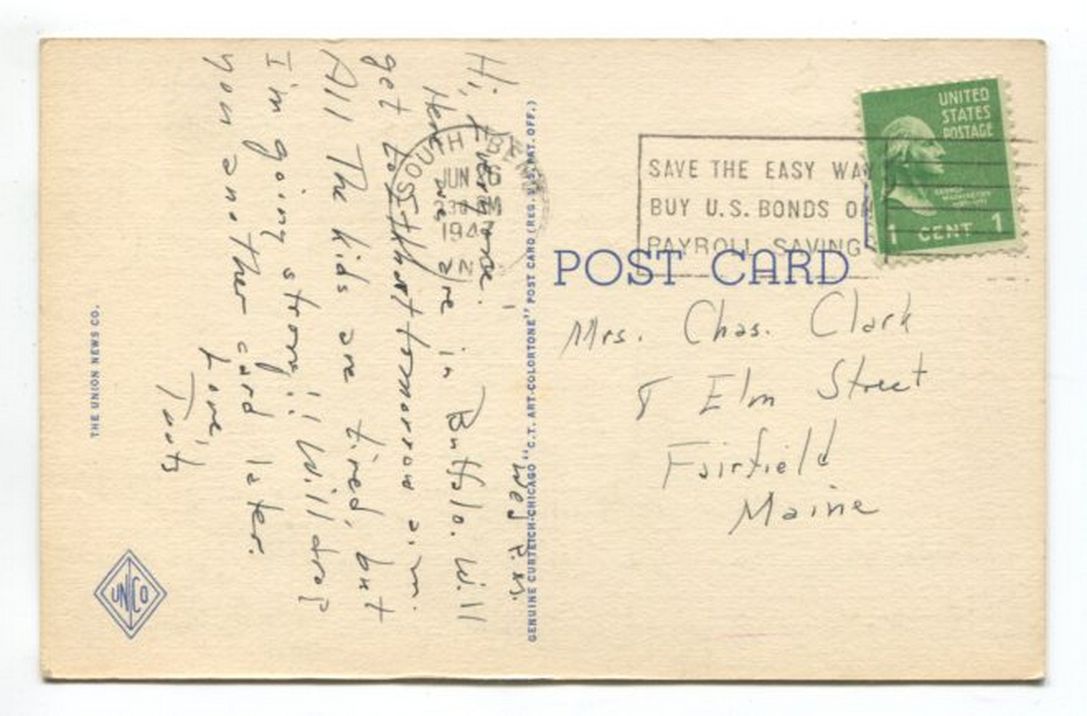 Wed P.M.
Hi, Everyone!
Here we are in Buffalo. Will
get to tomorrow a.m.
All The kids are tired, but
I'm going strong!! Will drop
you another card later.
Love,
Toots
SOUTH BEND
JUN 26
230 PM
1947
IND
SAVE THE EASY WAY
BUY U.S. BONDS ON
PAYROLL SAVING
UNITED
STATES
POSTAGE
1 CENT 1
POST CARD
Mrs. Chas. Clark
8 Elm Street
Fairfield
Maine
GENUINE CURTEICH-CHICAGO "C.T. ART-COLORTONE" POST CARD (REG. U.S. PAT. OFF.)
THE UNION NEWS CO.
UNCO